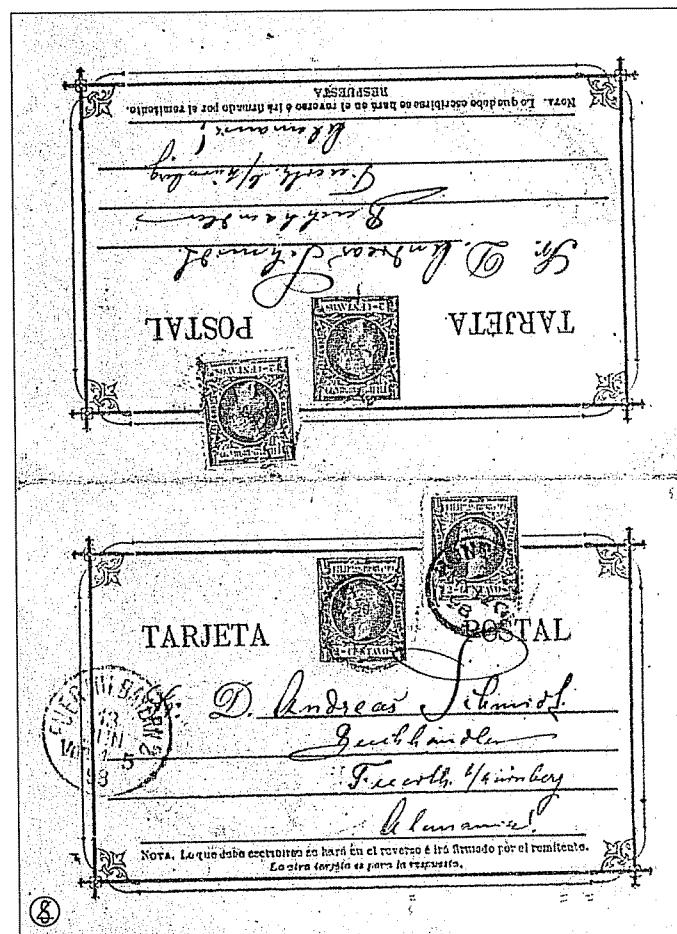 NOTA. Lo que debe escribirse se hará en el reverso é irá firmado por el remitente.
RESPUESTA
Alemania!
Fuerth b/Nürnberg
Buchhändler
Sr. D. Andreas Schmidt.
TARJETA POSTAL
2 - CENTAVOS
2 - CENTAVOS
TARJETA POSTAL
2 - CENTAVOS
FUERTH BAYERN 2
13
JUN
5
98
Sr. D. Andreas Schmidt.
Buchhändler
Fuerth b/Nürnberg
Alemania!
NOTA. Lo que deba escribirse se hará en el reverso é irá firmado por el remitente.
La otra tarjeta es para la respuesta.
8